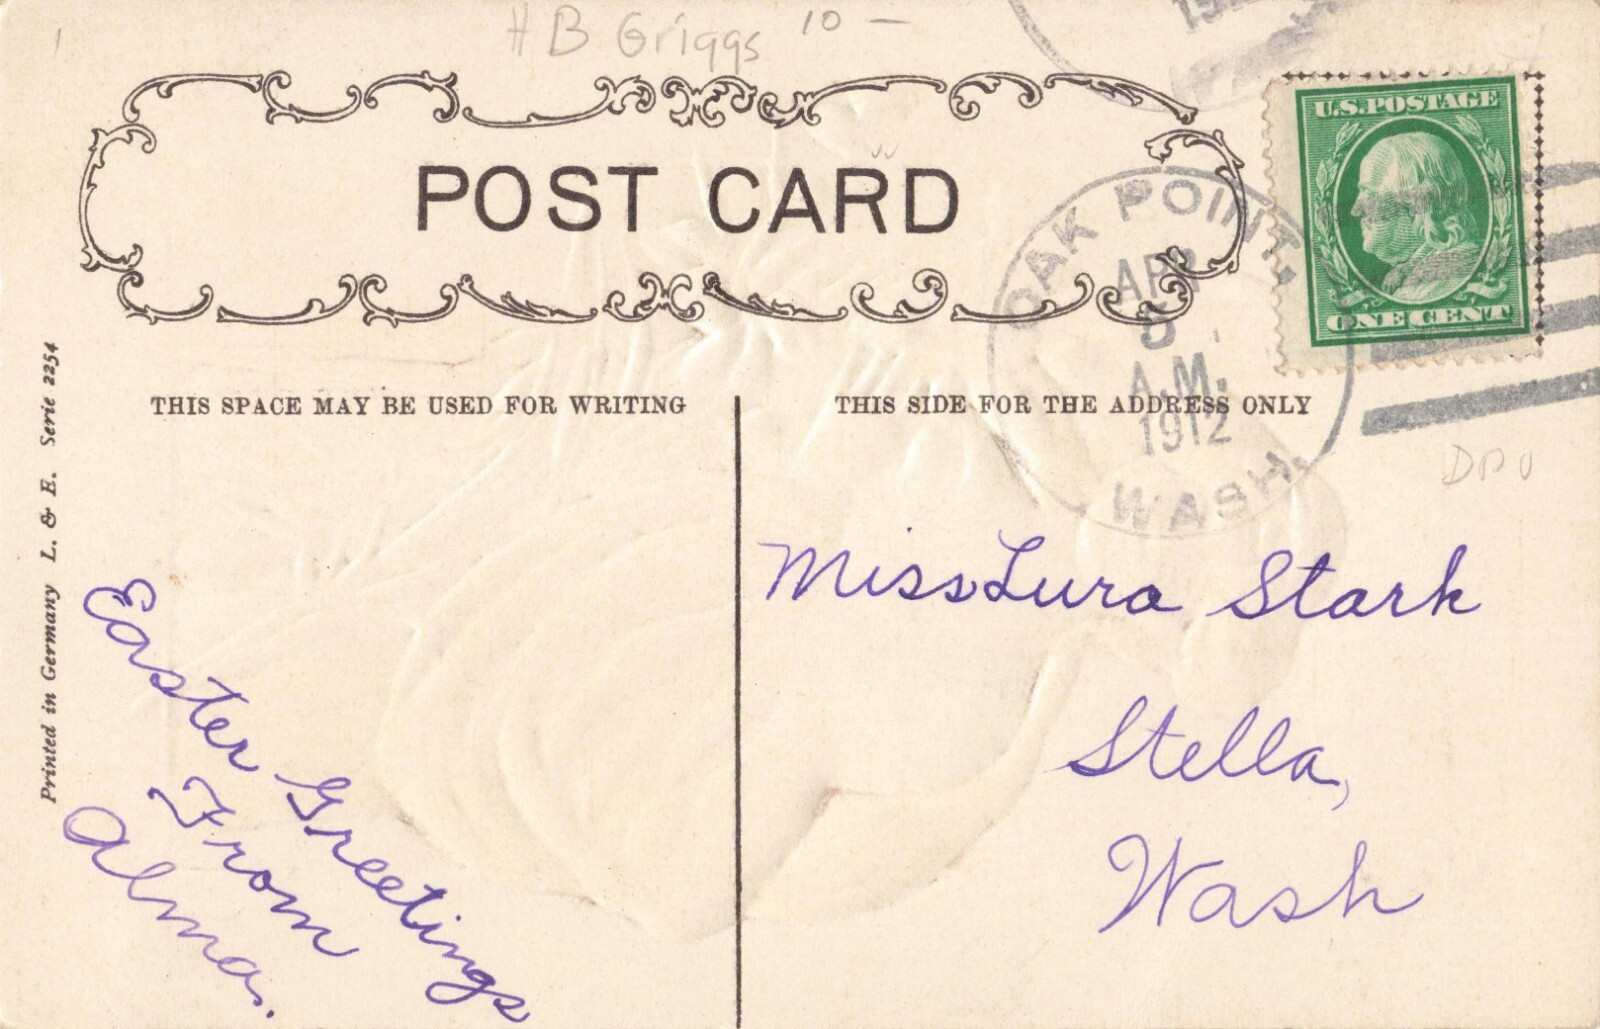 H B Griggs 10 —
POST CARD
U.S. POSTAGE
ONE CENT
OAK POINT.
APR
5
A.M.
1912
WASH.
THIS SPACE MAY BE USED FOR WRITING
THIS SIDE FOR THE ADDRESS ONLY
Printed in Germany L. & E. Serie 2254
Miss Lura Stark
Stella,
Wash
Easter Greetings
From
Alma.